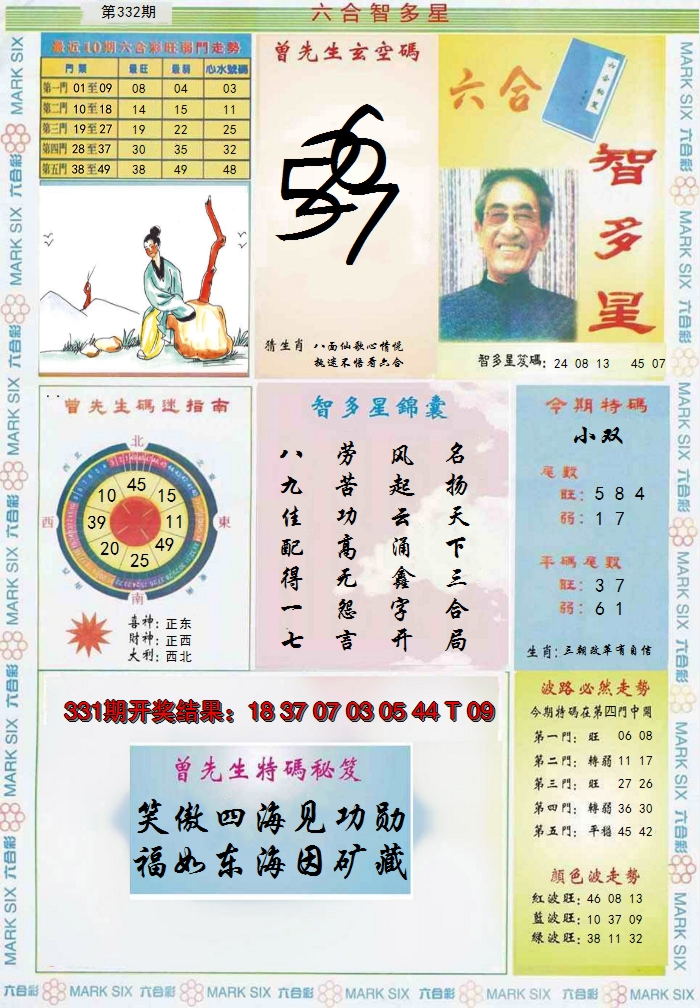 第332期
六合智多星
最近10期六合彩旺弱門走勢
門 類 最旺 最弱 心水號碼
第一門 01至09 08 04 03
第二門 10至18 14 15 11
第三門 19至27 19 22 25
第四門 28至37 30 35 32
第五門 38至49 38 49 48
曾先生玄空碼
567
猜生肖 八面仙歌心情悦
执迷不悟看六合
六合
六合秘笈
智多星
智多星笈碼: 24 08 13 45 07
曾先生碼迷指南
北
西北
東北
45
15
11
49
25
20
39
10
西
東
南
喜神: 正东
財神: 正西
大利: 西北
智多星錦囊
名扬天下三合局
风起云涌鑫字开
劳苦功高无怨言
八九佳配得一七
今期特碼
小双
尾數
旺: 5 8 4
弱: 1 7
平碼尾數
旺: 3 7
弱: 6 1
生肖: 三朝改革有自信
331期开奖结果: 18 37 07 03 05 44 T 09
曾先生特碼秘笈
笑傲四海见功勋
福如东海因矿藏
波路必然走勢
今期特碼在第四門中開
第一門: 旺 06 08
第二門: 轉弱 11 17
第三門: 旺 27 26
第四門: 轉弱 36 30
第五門: 平穩 45 42
顏色波走勢
紅波旺: 46 08 13
藍波旺: 10 37 09
绿波旺: 38 11 32
六合彩 MARK SIX 六合彩 MARK SIX 六合彩 MARK SIX 六合彩 MARK SIX 六合彩 MARK SIX